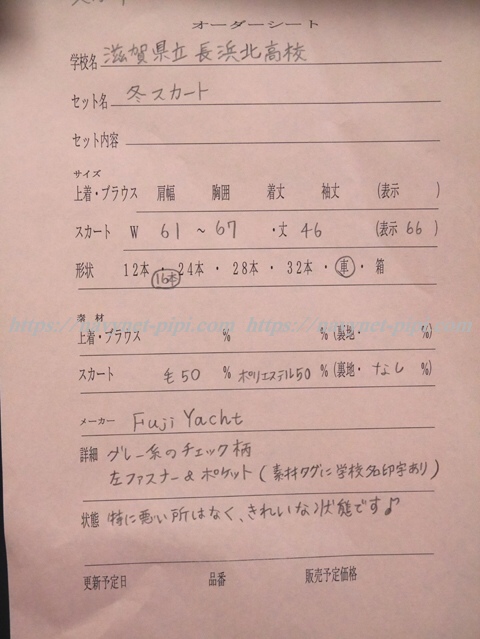 オーダーシート
学校名 滋賀県立長浜北高校
セット名 冬スカート
セット内容
サイズ
上着・ブラウス 肩幅 胸囲 着丈 袖丈 (表示 )
スカート W 61 ~ 67 ・丈 46 (表示 66 )
形状 12本 ・ 24本 ・ 28本 ・ 32本 ・ 車 ・ 箱
16本
素材
上着・ブラウス % % (裏地・ %)
スカート 毛50 % ポリエステル50 % (裏地・ なし %)
メーカー Fuji Yacht
詳細 グレー系のチェック柄
左ファスナー&ポケット(素材タグに学校名印字あり)
状態 特に悪い所はなく、きれいな状態です♪
更新予定日 品番 販売予定価格